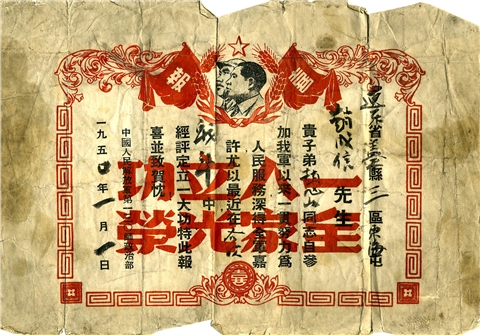 喜報
省 縣三區東海屯
趙成信先生
貴子弟 同志自參
加我軍以來一貫努力為
人民服務深得全軍嘉
許尤以最近在
中
經評定立一大功特此報
喜並致賀忱
中國人民解放軍第 政治部
一九五〇年一月一日
一人立功
全家光榮